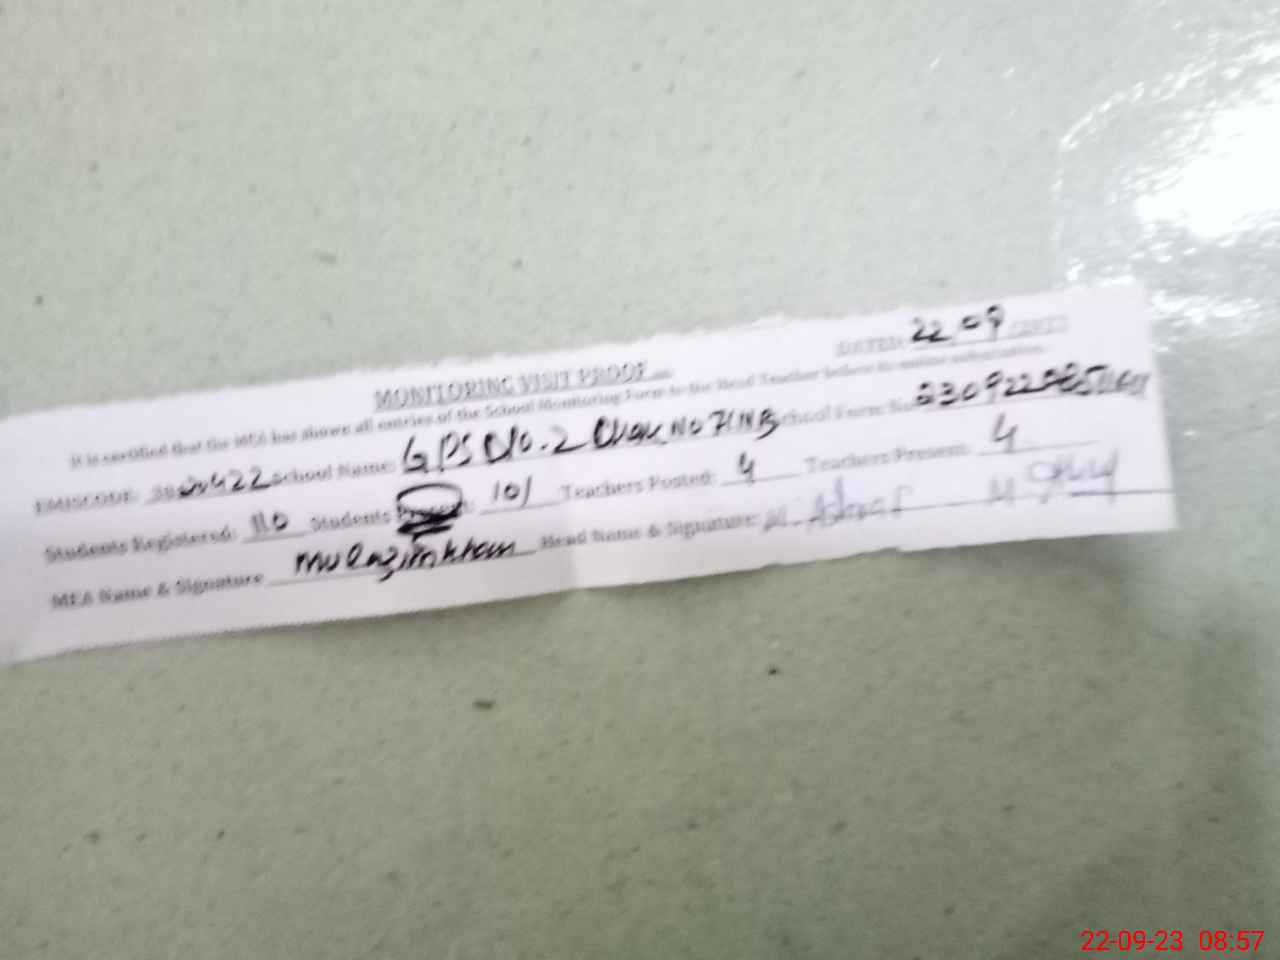 MONITORING VISIT PROOF
DATED: 22 09
It is certified that the MEA has shown all entries of the School Monitoring Form to the Head Teacher before its online submission.
EMISCODE: School Name: GPS No. 2 Chak No 71NB School Form No
Students Registered: 110 Students 101 Teachers Posted: 4 Teachers Present: 4
MEA Name & Signature Mulazim Head Name & Signature: M. Ashraf
22-09-23 08:57